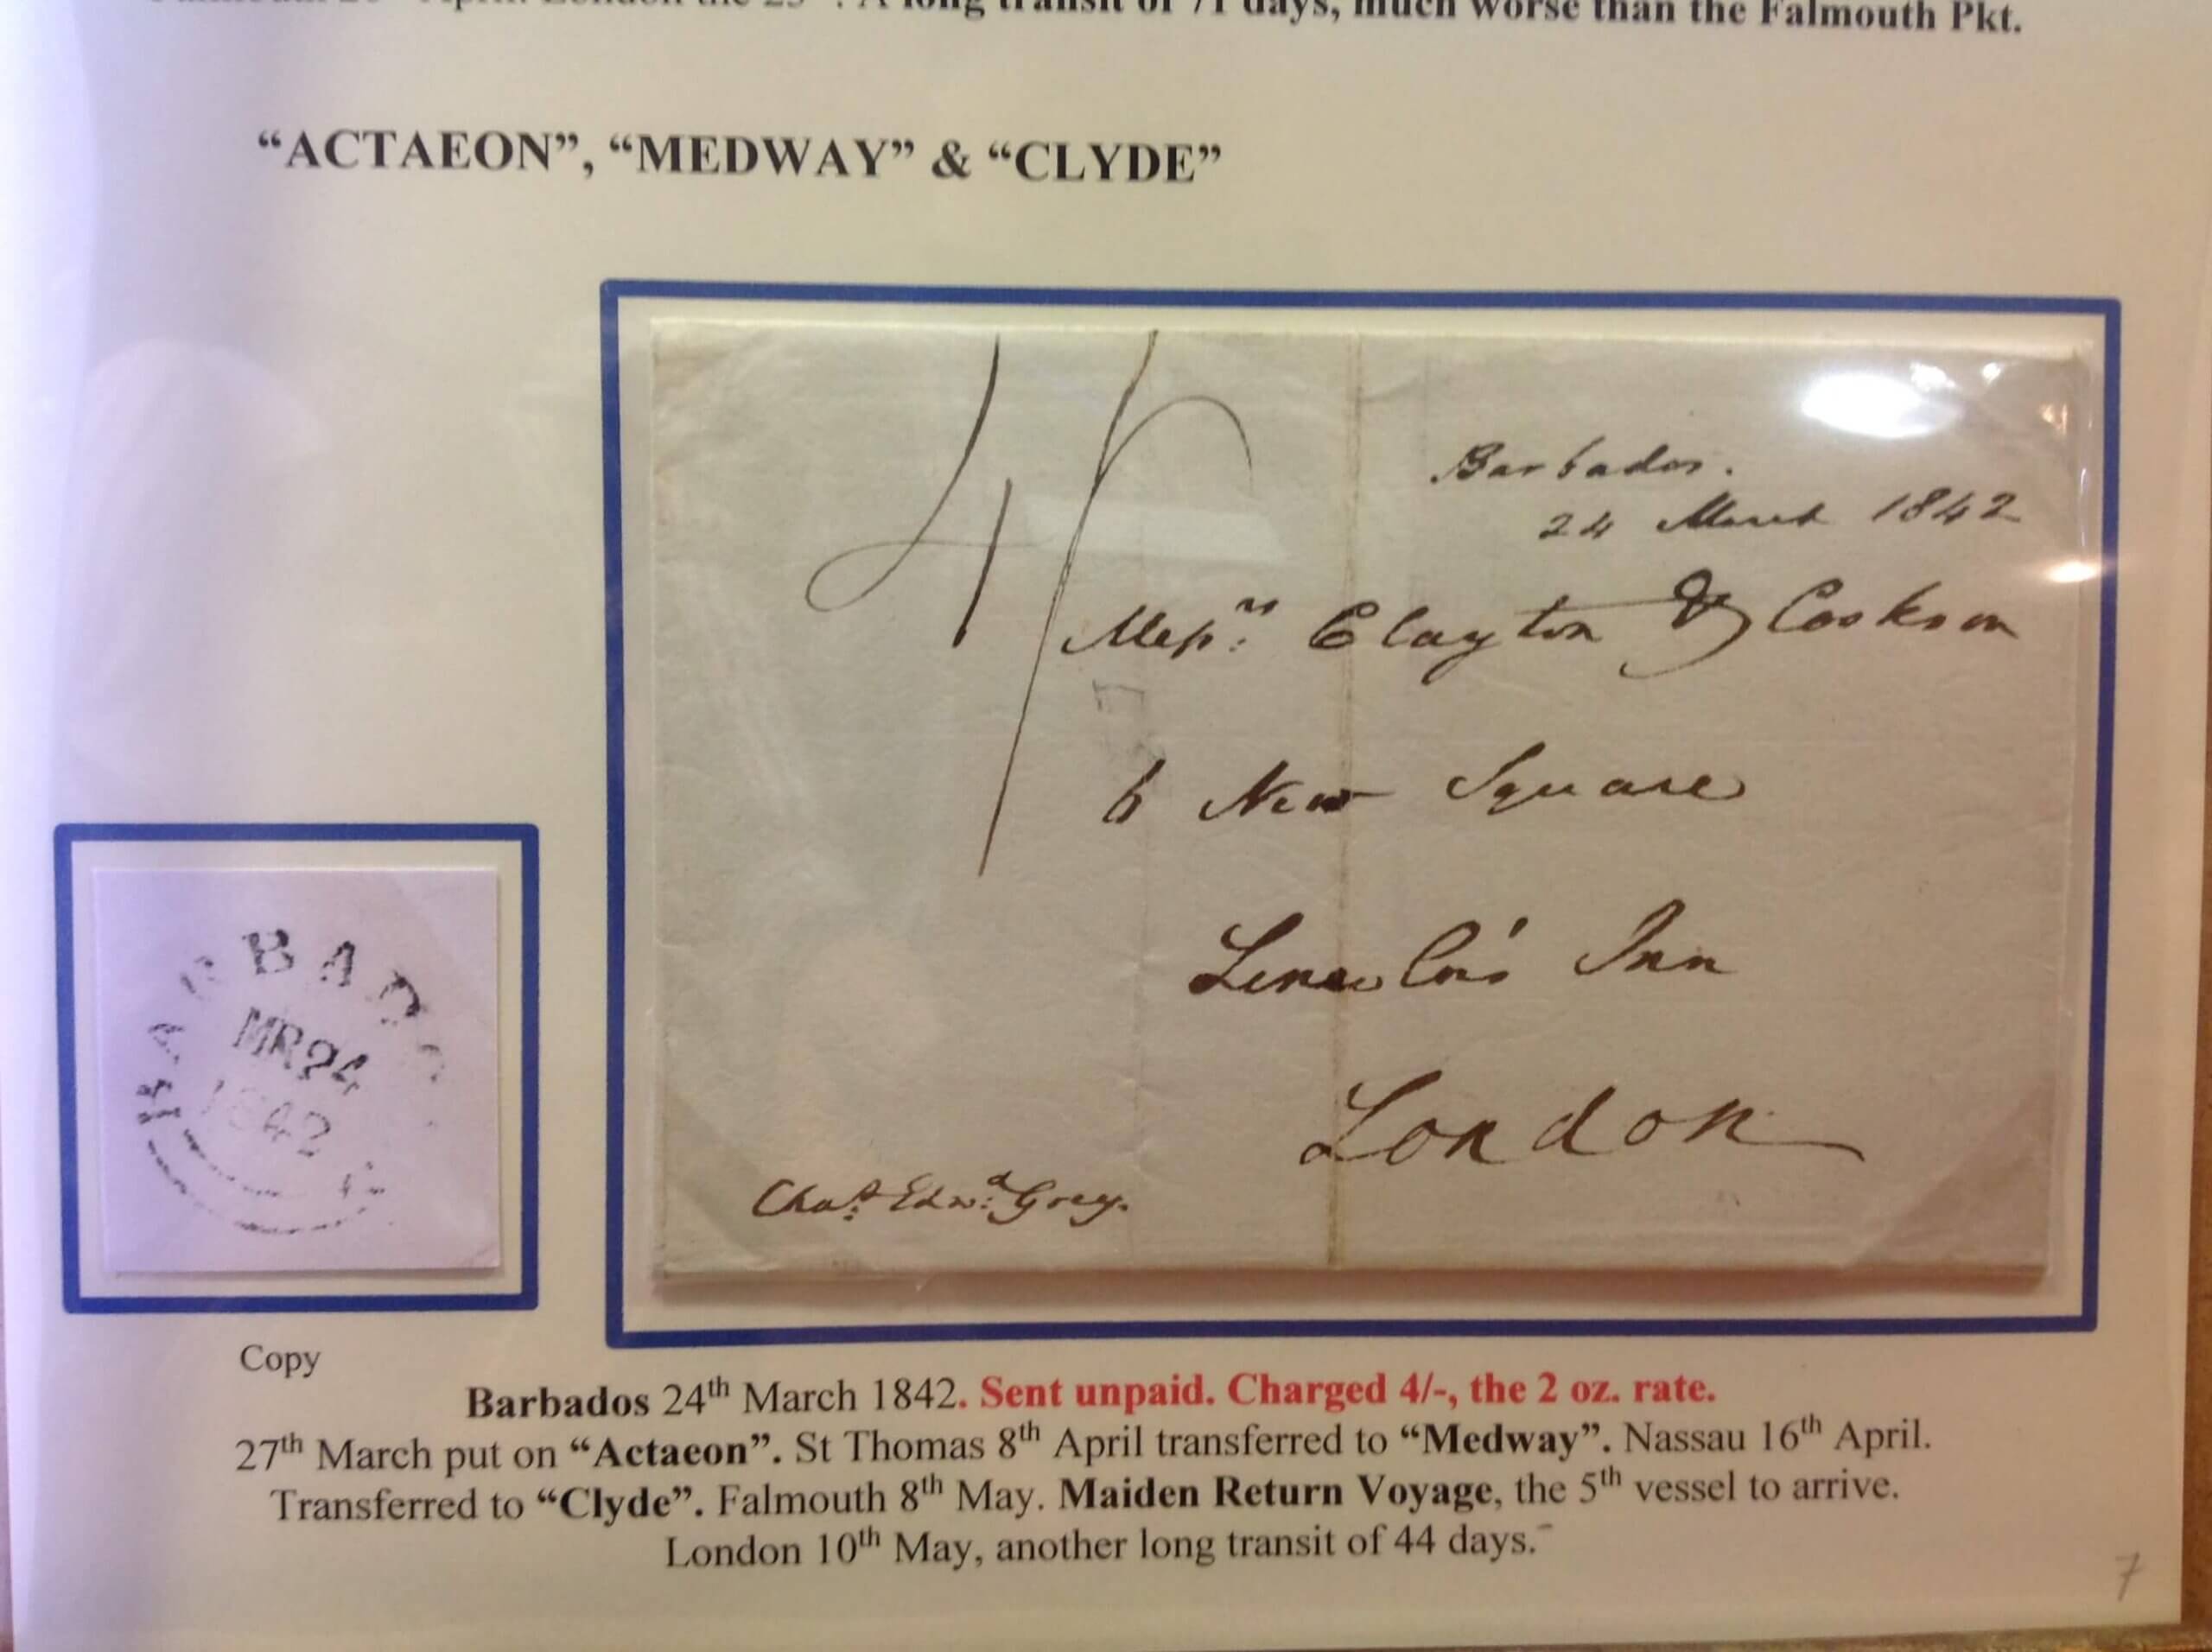 long transit of 71 days, much worse than the Falmouth Pkt.
“ACTAEON”, “MEDWAY” & “CLYDE”
4/-
Barbados.
24 March 1842
Messrs Clayton & Cookson
6 New Square
Lincoln's Inn
London
Chas. Edwd. Grey.
BARBADO
MR24
1842
Copy
Barbados 24th March 1842. Sent unpaid. Charged 4/-, the 2 oz. rate.
27th March put on “Actaeon”. St Thomas 8th April transferred to “Medway”. Nassau 16th April.
Transferred to “Clyde”. Falmouth 8th May. Maiden Return Voyage, the 5th vessel to arrive.
London 10th May, another long transit of 44 days.
7